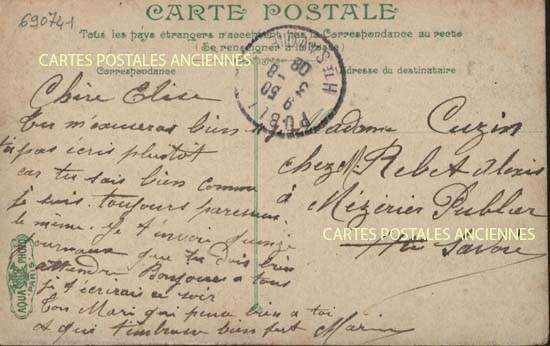 69074-1
CARTE POSTALE
Tous les pays étrangers n'acceptent pas la Correspondance au recto
(Se renseigner à la Poste)
CARTES POSTALES ANCIENNES
Correspondance
Adresse du destinataire
PUBLI
Hte SAVOIE
9 50
3 -8
08
Chère Elise
Tu m'excuseras bien si
t'ai pas écris plustot
car tu sais bien comme
je suis toujours paresseux
le même. Je t'envoie
journaux que tu dois bien
attendre Bonjour à tous
Je t'écrirais ce soir
Ton Mari qui pense bien à toi
et qui t'embrasse bien fort Marin
Madame Cuzin
chez M. Rebet Alexis
à Mézeries Publier
Hte Savoie
CARTES POSTALES ANCIENNES
AQUA PHOTO
PARIS